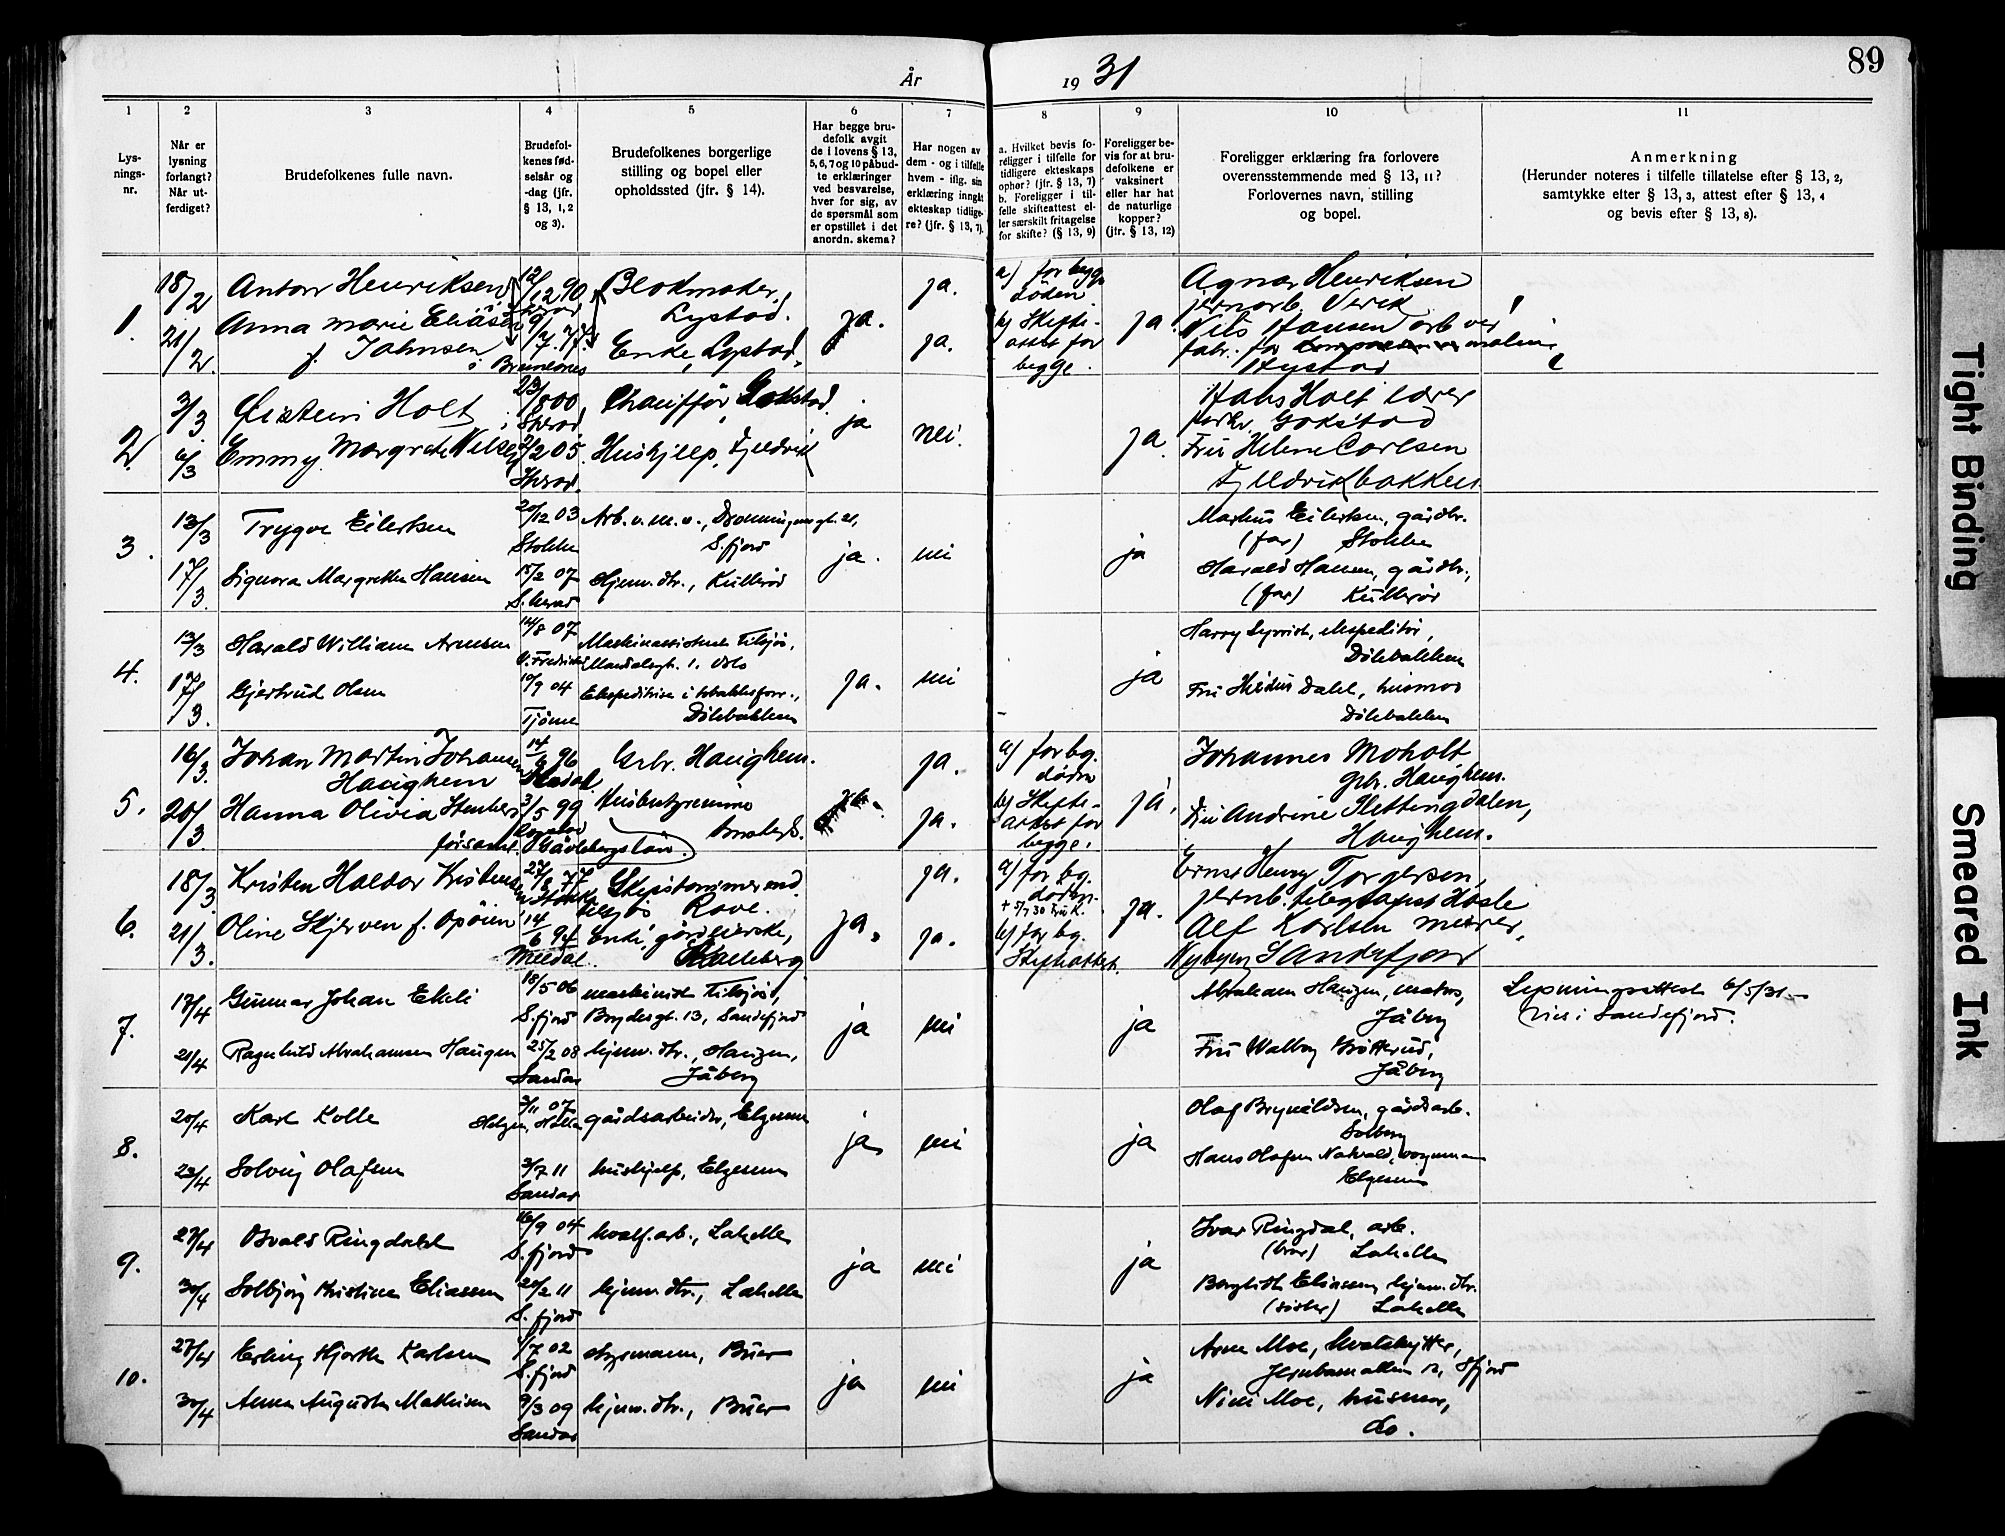 89
År 1931
1 2 3 4 5 6 7 8 9 10 11
Lysnings-
nr.
Når er
lysning
forlangt?
Når ut-
ferdiget?
Brudefolkenes fulle navn.
Brudefol-
kenes fød-
selsår og
-dag (jfr.
§ 13, 1, 2
og 3).
Brudefolkenes borgerlige
stilling og bopel eller
opholdssted (jfr. § 14).
Har begge bru-
defolk avgit
de i lovens § 13,
5, 6, 7 og 10 påbud-
te erklæringer
ved besvarelse,
hver for sig, av
de spørsmål som
er opstillet i det
anordn. skema?
Har nogen av
dem - og i tilfelle
hvem - iflg. sin
erklæring inngått
ekteskap tidlige-
re? (jfr. § 13, 7).
a. Hvilket bevis fo-
religger i tilfelle for
tidligere ekteskaps
ophør? (jfr. § 13, 7)
b. Foreligger i til-
felle skifteattest el-
ler særskilt fritagelse
for skifte? (§ 13, 9)
Foreligger be-
vis for at bru-
defolkene er
vaksinert
eller har hat
de naturlige
kopper?
(jfr. § 13, 12)
Foreligger erklæring fra forlovere
overensstemmende med § 13, 11?
Forlovernes navn, stilling
og bopel.
Anmerkning
(Herunder noteres i tilfelle tillatelse efter § 13, 2,
samtykke efter § 13, 3, attest efter § 13, 4
og bevis efter § 13, 8).
1.
18/2
21/2
Anton Henriksen
Anna Marie Eliasen
f. Johnsen
12/12 90
9/7. 77.
i Brunlanes
Blokmaker,
Lystad.
Enke, Lystad.
ja.
ja.
ja.
a) for begge
døden.
b) Skifte-
attest for
begge.
ja
Agnar Henriksen
jernarb. Virik
Nils Hansen arb ved
fabr. for
Lystad
2.
3/3
6/3
Øistein Holt
Emmy Margrete Nilsen
23/8 00
2/2 05
Chauffør, Gokstad.
Hushjelp, Fjeldvik
ja
nei.
ja.
Hans Holt lærer
Gokstad
Fru Helene Carlsen
Fjeldvikbakken
3.
13/3
17/3
Trygve Eilertsen
Signora Margrethe Hansen
20/12 03
Stokke
15/2 07
S. herad
Arb. u. m. v., Dronningens gt. 21,
S.fjord
Hjemv. dtr., Kullerød
ja.
nei
ja
Markus Eilertsen, gårdbr.
(far) Stokke
Harald Hansen, gårdbr.,
(far) Kullerød
4.
13/3
17/3.
Harald William Arnesen
Gjertrud Olsen
14/8 07
10/9 04
Tjøme
Maskinassistent tilsjøs,
1, Oslo
Ekspeditrise i tobakksforr.,
Dølebakken
ja.
nei
ja
Harry , ekspeditør,
Dølebakken
Fru Hildur Dahl, husmor
Dølebakken
5.
16/3.
20/3
Johan Martin Johansen
Haughem
Hanna Olivia Stenberg
14/6 96
3/5 99
Gävlebergs län.
Arb. Haughem.
Husbestyrerinne
ja.
ja.
ja.
a) for bg.
døden
b) Skifte-
attest for
begge.
ja.
Johannes Moholt
gbr. Haughem.
Fru Andrine Slettingdalen,
Haughem.
6.
18/3.
21/3.
Kristen Haldor Kristensen
Oline Skjerven f. Opøien
27/8 77
14/6 94
Meldal.
Skipstømmermand
tilsjøs Rove.
Enke, gårdeierske,
ja.
ja.
ja.
a) for bg.
døden.
+ 5/7 30
b) for bg.
Skifteattest.
ja.
Ernst Henry Torgersen,
jernb. telegrafist Hasle
Alf Karlsen murer,
Nybyen Sandefjord
7.
17/4
21/4
Gunnar Johan Ekeli
Ragnhild Abrahamsen Haugen
18/5 06
S.fjord
25/2 08
Sandar
maskinist tilsjøs,
Brydesgt. 13, Sandefjord
hjemv. dtr., Haugen,
Jåberg
ja
nei
ja
Abraham Haugen, matros,
Jåberg
Fru Walborg Grøtterud,
Jåberg
Lysningsattest 6/5/31.
Viet i Sandefjord.
8.
20/4
23/4
Karl Kolle
Solveig Olafsen
3/11 07
Helgen, Holla
3/7 11
Sandar
gårdsarbeider, Elgesem
hushjelp, Elgesem
ja
nei
ja
Olaf Brynildsen, gårdsarb.
Solberg
Hans Olafsen Natvald, vognmann
Elgesem
9.
27/4
30/4
Osvald Ringdal
Solbjørg Kristine Eliassen
16/9 04
S.fjord
20/2 11
S.fjord
hvalf.arb., Lahelle
hjemv. dtr., Lahelle
ja
nei
ja
Ivar Ringdal, arb.
(bror) Lahelle
Bergliot Eliassen, hjemv. dtr.
(søster) Lahelle
10.
27/4
30/4
Erling Hjorth Karlsen
Anna Augusta Mathisen
1/7 02
S.fjord
9/3 09
Sandar
styrmann, Buer
hjemv. dtr., Buer
ja
nei
ja
Arne Moe, hvalskytter,
Jernbanealleen 12, Sfjord
Nicli Moe, husmor,
do.
Tight Binding
Smeared Ink